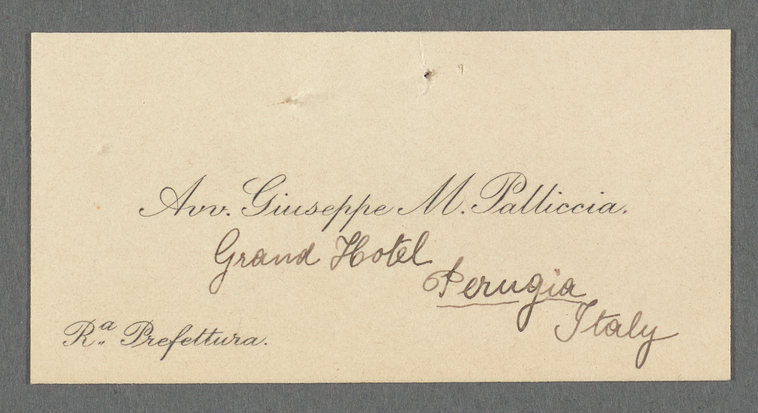 Avv. Giuseppe M. Palliccia.
Grand Hotel
Perugia
Italy
R.a Prefettura.